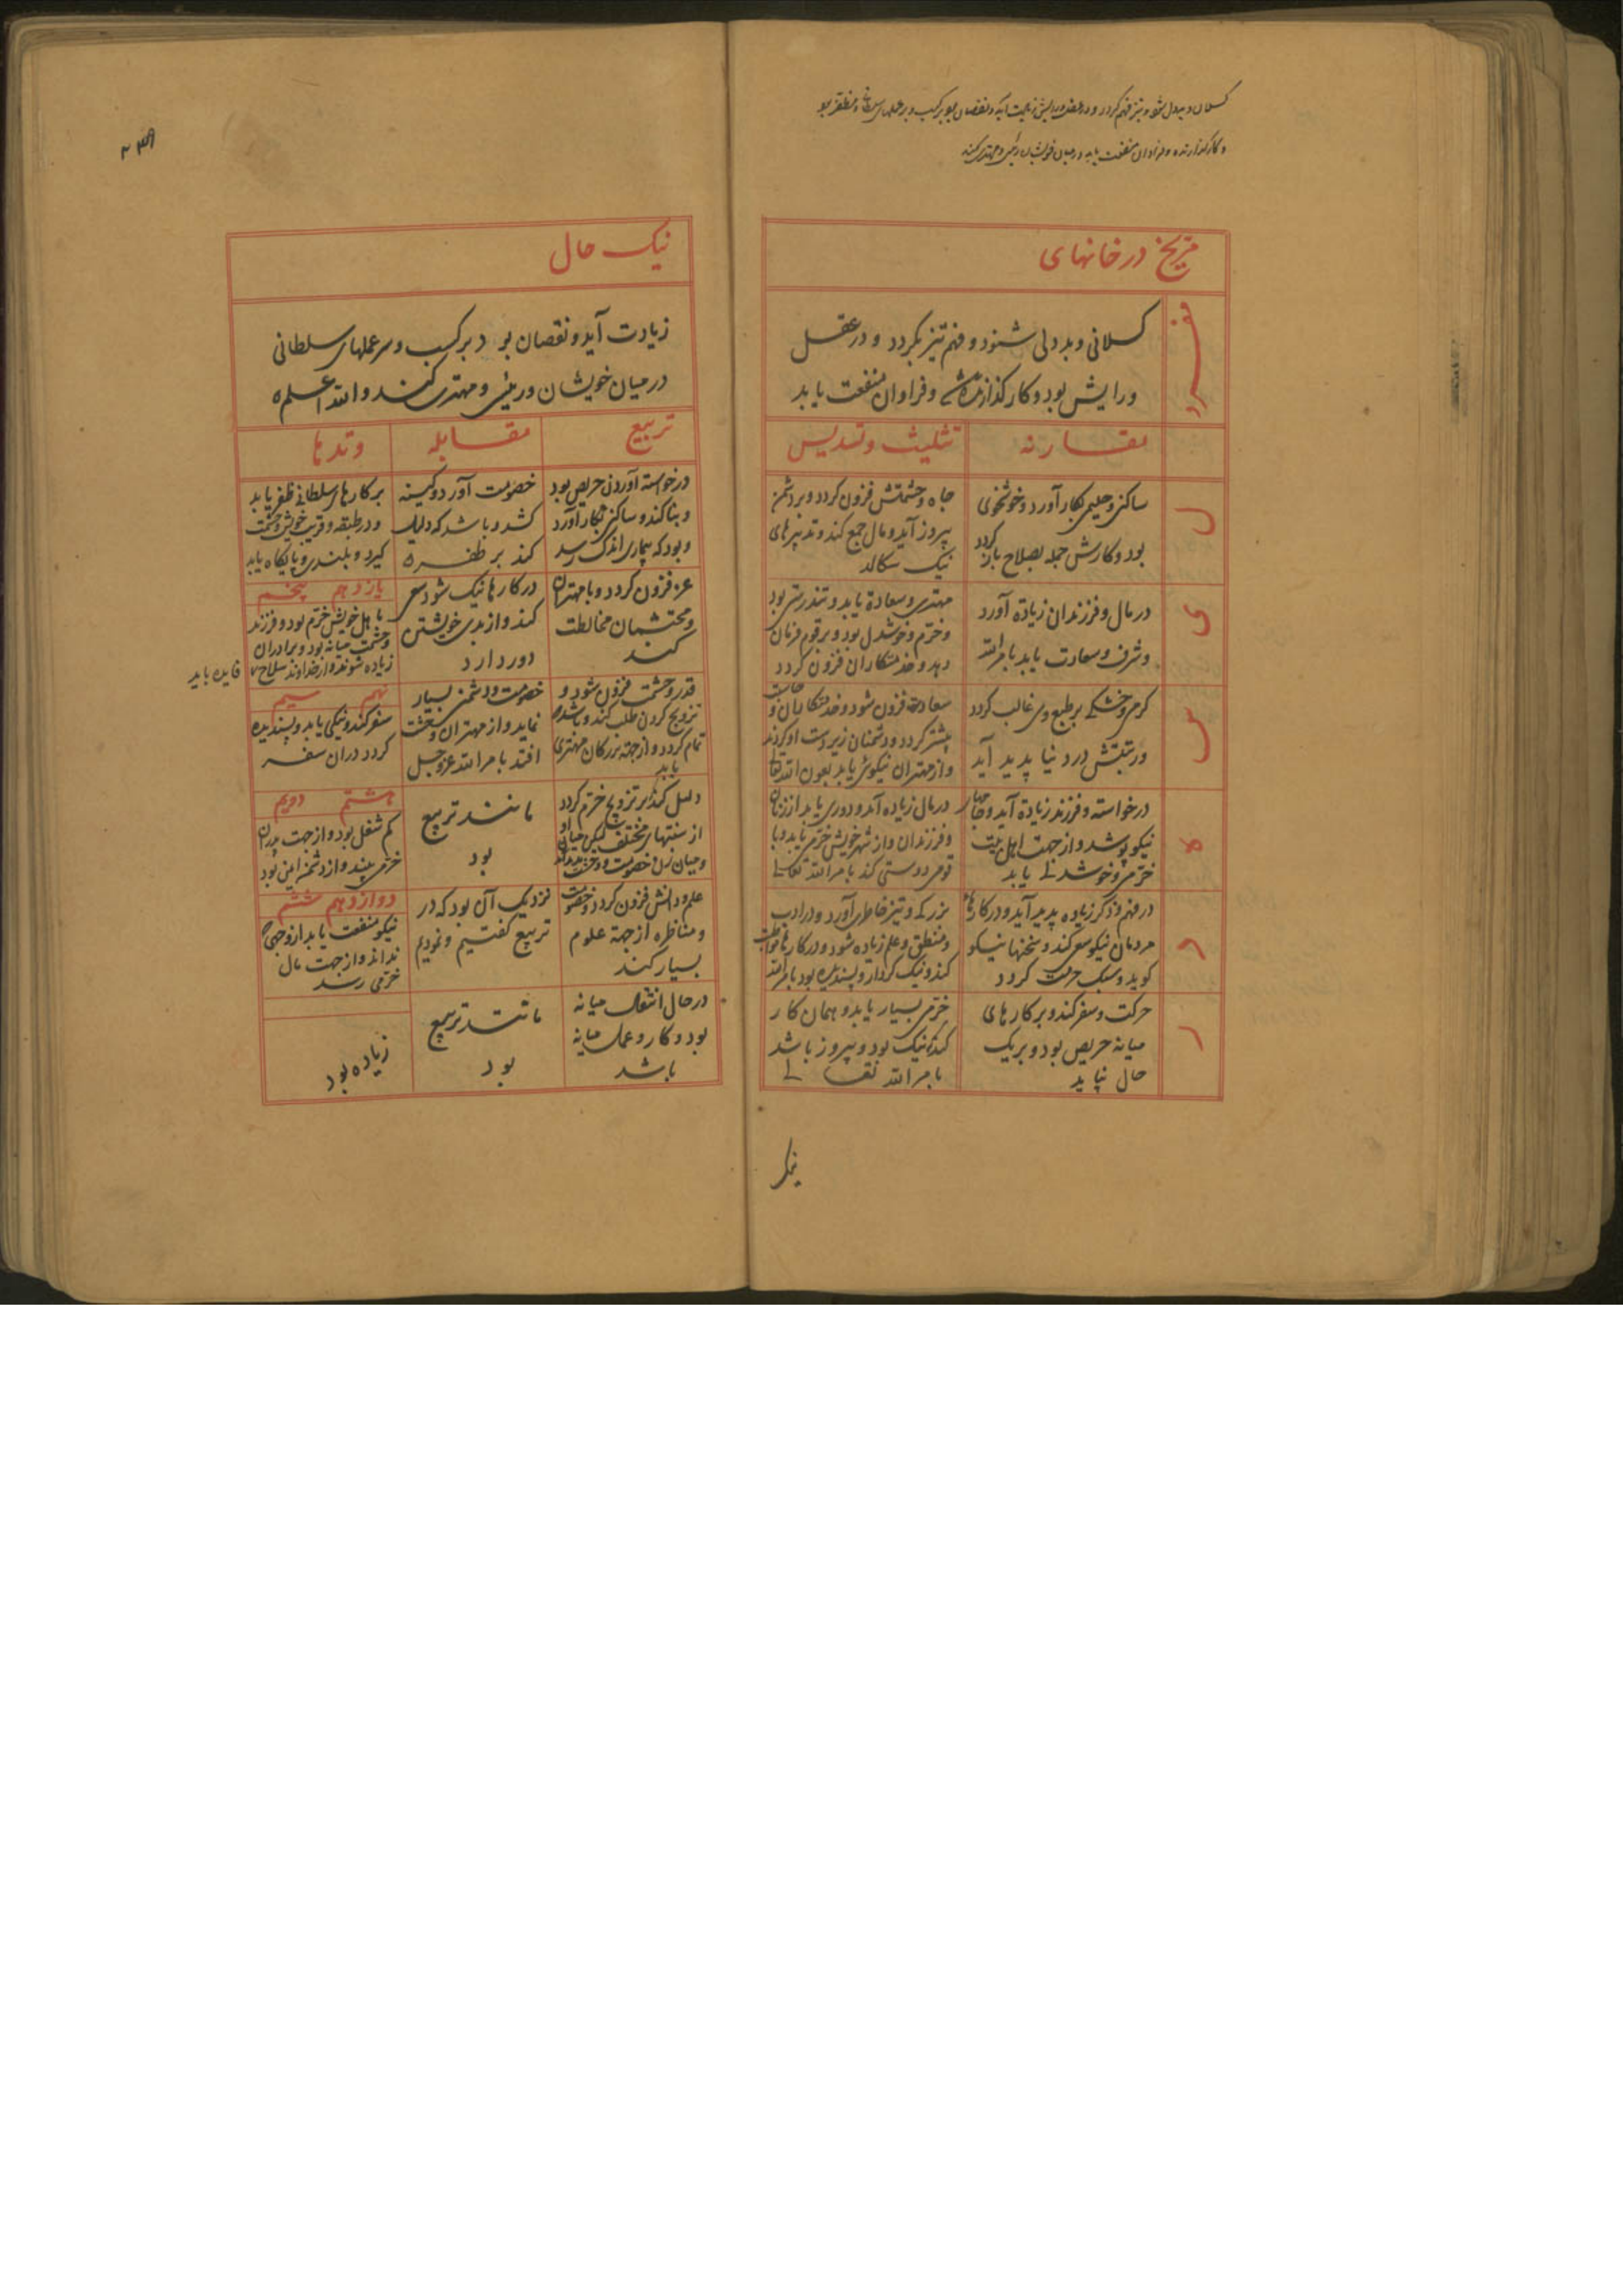 کسلان و بددل شود و تیز فهم گردد و در عقل و رایش زیادت آید و نقصان بود بر کسب و بر عملهای سلطانی مظفر بود
و کار گذارنده و فراوان منفعت یابد در میان خویشان رئیسی و مهتری کند
مریخ در خانهای
مفرد
کسلانی و بددلی شنود و فهم تیز بگردد و در عقل
و رایش بود و کار گذارنده و فراوان منفعت یابد
مقارنه
تثلیث و تسدیس
ل
ساکنی و حلیمی بکار آورد و خوشخوی
بود و کارش جمله بصلاح باز گردد
جاه و حشمتش فزون گردد و بر دشمن
پیروز آید و مال جمع کند و تدبیرهای
نیک سکالد
ی
در مال و فرزندان زیاده آورد
و شرف و سعادت یابد بامر الله
مهتری و سعادة یابد و تندرستی بود
و خرم و خوشدل بود و بر قوم فرمان
دهد و خدمتکاران فزون گردد
س
گرمی و خشکی بر طبع وی غالب گردد
و رتبتش در دنیا پدید آید
سعادت فزون شود و خدمتکاران و حاشیت
بیشتر گردد و دشمنان زیر دست او گردند
و از مهتران نیکوئی یابد بعون الله تعالی
ه
درخواسته و فرزند زیاده آید و جامهای
نیکو پوشد و از جهت اهل بیت
خرمی و خوشدلی یابد
در مال زیاده آید و دوری یابد از زنان
و فرزندان و از شهر خویش خرمی یابد و با
قومی دوستی کند بامر الله تعالی
د
در فهم و ذکر زیاده پدید آید و در کارهای
مردمان نیکو سعی کند و سخنها نیکو
گوید و سبک حرکت گردد
بزرگی و تیز خاطری آورد و در ادب
و منطق و علم زیاده شود و در کارها مواظبت
کند و نیک کردار و پسندیده بود بامر الله
ر
حرکت و سفر کند و بر کارهای
میانه حریص بود و بر یک
حال نپاید
خرمی بسیار یابد و همان کار
کند نیک بود و پیروز باشد
بامر الله تعالی
نیک
۲۳۹
نیک حال
زیادت آید و نقصان بود بر کسب و بر عملهای سلطانی
در میان خویشان و رئیسی و مهتری کند و الله اعلم
تربیع
مقابله
وتدها
درخواسته آوردن حریص بود
و بنا کند و ساکنی بکار آورد
و بود که بیماری اندک رسد
خصومت آورد و کینه
کشد و باشد که دلیل
کند بر ظفر
بر کارهای سلطانی ظفر یابد
و در طبقه و قرین خویش و حشمت
گیرد و بلندی و پایگاه یابد
عز فزون گردد و با مهتران
و محتشمان مخالطت
کند
در کارها نیک شود سعی
کند و از بدی خویشتن
دور دارد
یازدهم پنجم
با اهل خویش خرم بود و فرزند
و حشمت میانه بود و برادران
زیاده شوند و از خداوند سلاح
فایده یابد
قدر و حشمت فزون شود و
تزویج کردن طلب کند و باشد
تمام گردد و از جهة بزرگان مهتری
یابد
خصومت و دشمنی بسیار
نماید و از مهتران وحشت
افتد بامر الله عز و جل
نهم سیم
سفر کند و نیکی یابد و پسندیده
گردد در آن سفر
دلیل کند بر تزویج خرم گردد
از سنتهای مختلف لیکن میان او
و میان زن خصومت و وحشت
مانند تربیع
بود
هشتم دویم
کم شغل بود و از جهت پدران
خرمی بیند و از دشمن ایمن بود
علم و دانش فزون گردد و خصومت
و مناظره از جهة علوم
بسیار کند
نزدیک آن بود که در
تربیع گفتیم و نمودیم
دوازدهم ششم
نیکو منفعت یابد از وجهی که
نداند و از جهت مال
خرمی رسد
در حال انتقال میانه
بود و کار و عمل میانه
باشد
مانند تربیع
بود
زیاده بود